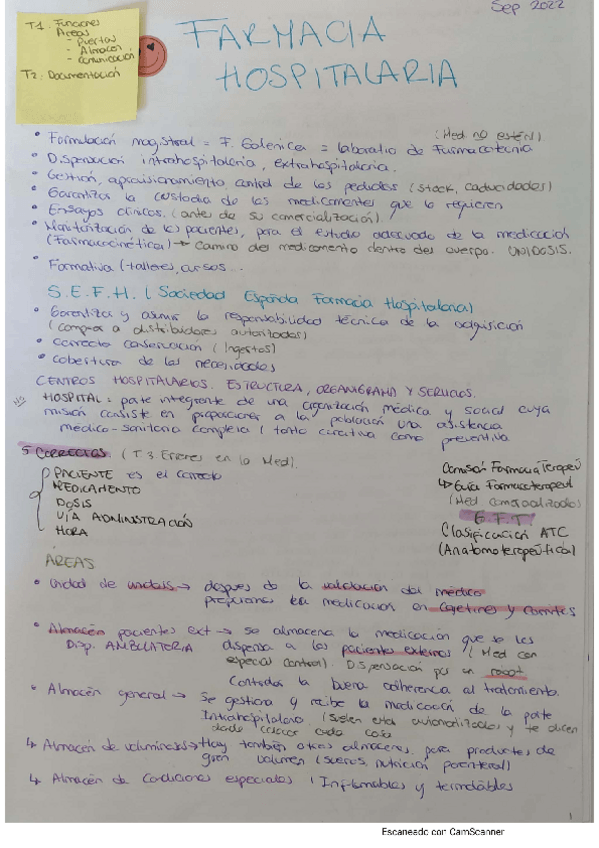 Sep 2022
T1. Funciones
Areas
- Puertas
- Almacen
- Comunicación
T2. Documentación
FARMACIA
HOSPITALARIA
• Formulación magistral = F. Galenica = laboratorio de Farmacotecnia (Med no estén)
• Dispensación intrahospitalaria, extrahospitalaria.
• Gestión, aprovisionamiento, control de los pedidos (stock, caducidades)
• Garantizar la custodia de los medicamentos que lo requieren
• Ensayos clinicos. (antes de su comercialización)
• Monitorización de los pacientes, para el estudio adecuado de la medicación
(Farmacocinética) → Camino del medicamento dentro del cuerpo. UNIDOSIS.
• Formativa (talleres, cursos...
S.E.F.H. (Sociedad Española Farmacia Hospitalaria)
• Garantizar y asumir la responsabilidad técnica de la adquisición
(comprar a distribuidores autorizados)
• correcta conservación
• cobertura de las necesidades
CENTROS HOSPITALARIOS. ESTRUCTURA, ORGANIGRAMA Y SERVICIOS.
HOSPITAL: parte integrante de una organización médica y social cuya
misión consiste en proporcionar a la población una asistencia
médico-sanitaria completa (tanto curativa como preventiva
5 CORRECTOS. (T.3 Errores en la Med).
PACIENTE es el correcto
MEDICAMENTO
DOSIS
VIA ADMINISTRACIÓN
HORA
Comisión Farmacia Terapeú
↳ Guía Farmacoterapeut
(Med comercializados)
G.F.T.
Clasificación ATC
(Anatomoterapeútica)
ÁREAS
• Unidad de unidosis → despues de la validación del médico
preparamos la medicación en cajetines y carritos
• Almacén pacientes ext → se almacena la medicación que se les
Disp. AMBULATORIA dispensa a los pacientes externos (Med con
especial control). Dispensación por un robot
Controlar la buena adherencia al tratamiento.
• Almacén general → Se gestiona y recibe la medicación de la parte
Intrahospitalaria (Suelen estar automatizados y te dicen
donde colocar cada cosa
↳ Almacén de voluminosos → Hay también otros almacenes para productos de
gran volumen (sueros, nutrición parenteral)
↳ Almacén de Condiciones especiales (Inflamables y termolábiles
1
Escaneado con CamScanner